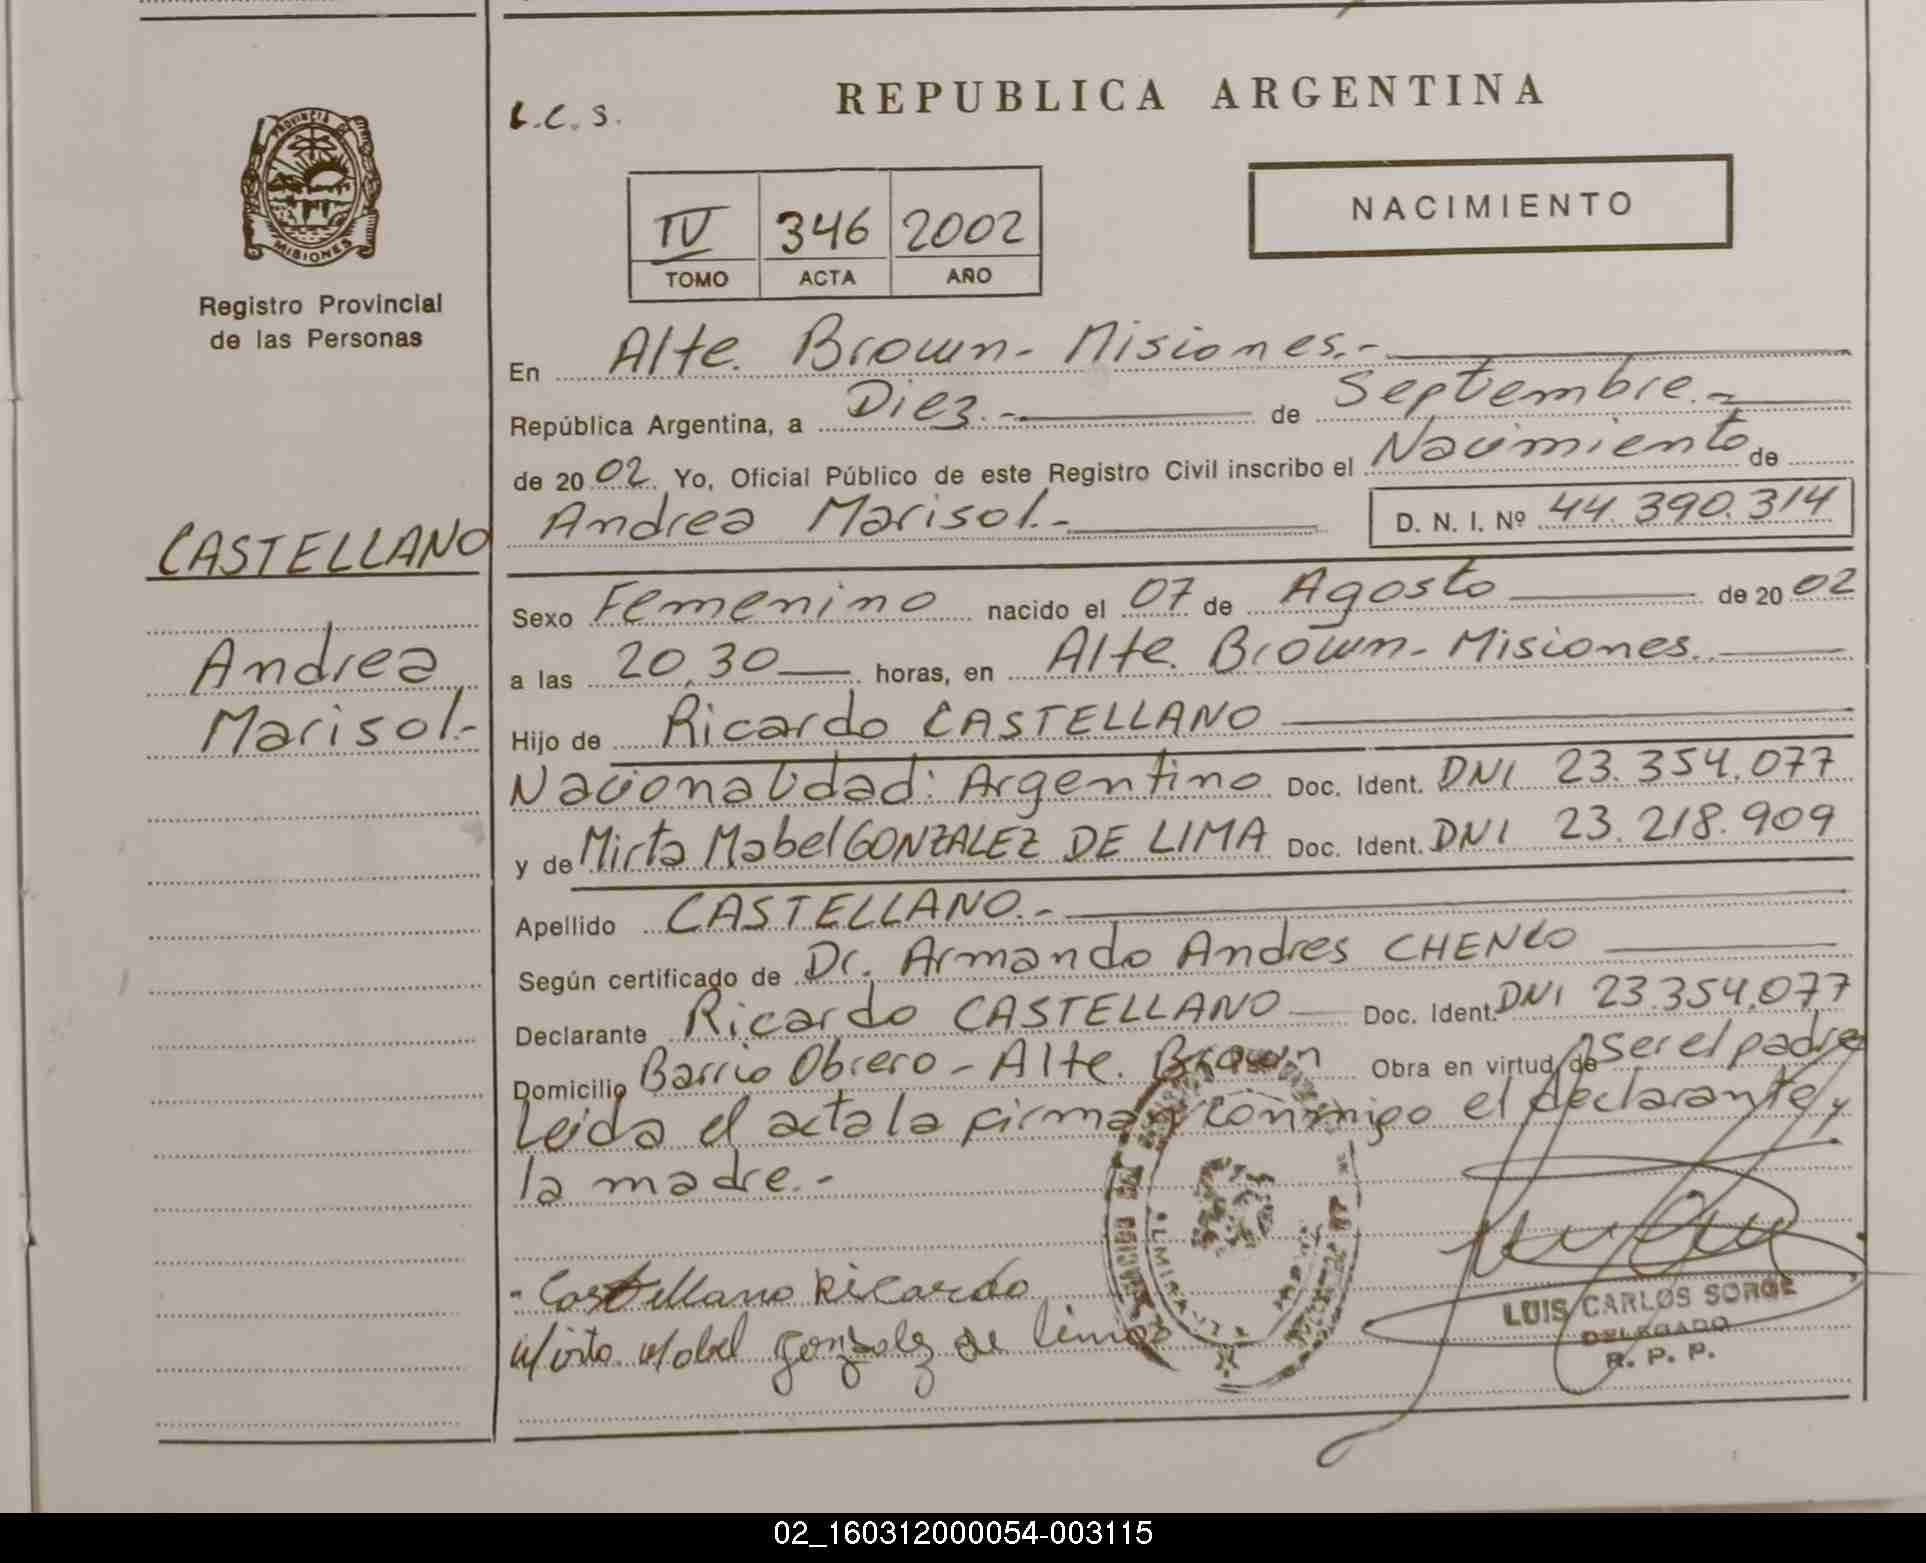 REPUBLICA ARGENTINA
L.C.S.
PROVINCIA DE
MISIONES
Registro Provincial
de las Personas
NACIMIENTO
IV 346 2002
TOMO ACTA AÑO
En Alte. Brown - Misiones.-
República Argentina, a Diez.- de Septiembre.-
de 2002 Yo, Oficial Público de este Registro Civil inscribo el Nacimiento de
Andrea Marisol.- D. N. I. Nº 44.390.314
CASTELLANO
Andrea
Marisol.-
Sexo Femenino nacido el 07 de Agosto de 2002
a las 20,30 horas, en Alte. Brown - Misiones.
Hijo de Ricardo CASTELLANO
Nacionalidad: Argentino Doc. Ident. DNI 23.354.077
y de Mirta Mabel GONZALEZ DE LIMA Doc. Ident. DNI 23.218.909
Apellido CASTELLANO.-
Según certificado de Dr. Armando Andres
Declarante Ricardo CASTELLANO Doc. Ident. DNI 23.354.077
Domicilio Barrio Obrero - Alte. Brown Obra en virtud de ser el padre
Leida el acta la firman conmigo el declarante y
la madre.-
- Castellano Ricardo
Mirta Mabel gonzalez de lima
LUIS CARLOS SORGE
DELEGADO
R. P. P.
02_160312000054-003115